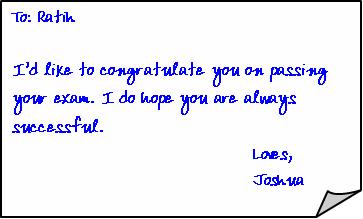 To: Ratih
I'd like to congratulate you on passing
your exam. I do hope you are always
successful.
Loves,
Joshua